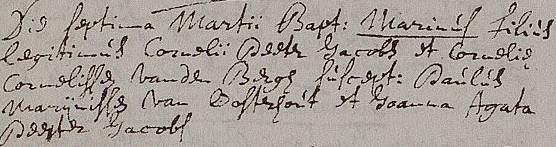 Die septima Martii Bapt: Marinus filius
legitimus Cornelii Peeter Jacobs et Cornelie
Cornelisse vanden Bergh suscept: Paulus
Marijnisse van Oosterhout et Joanna Agata
Peeter Jacobs